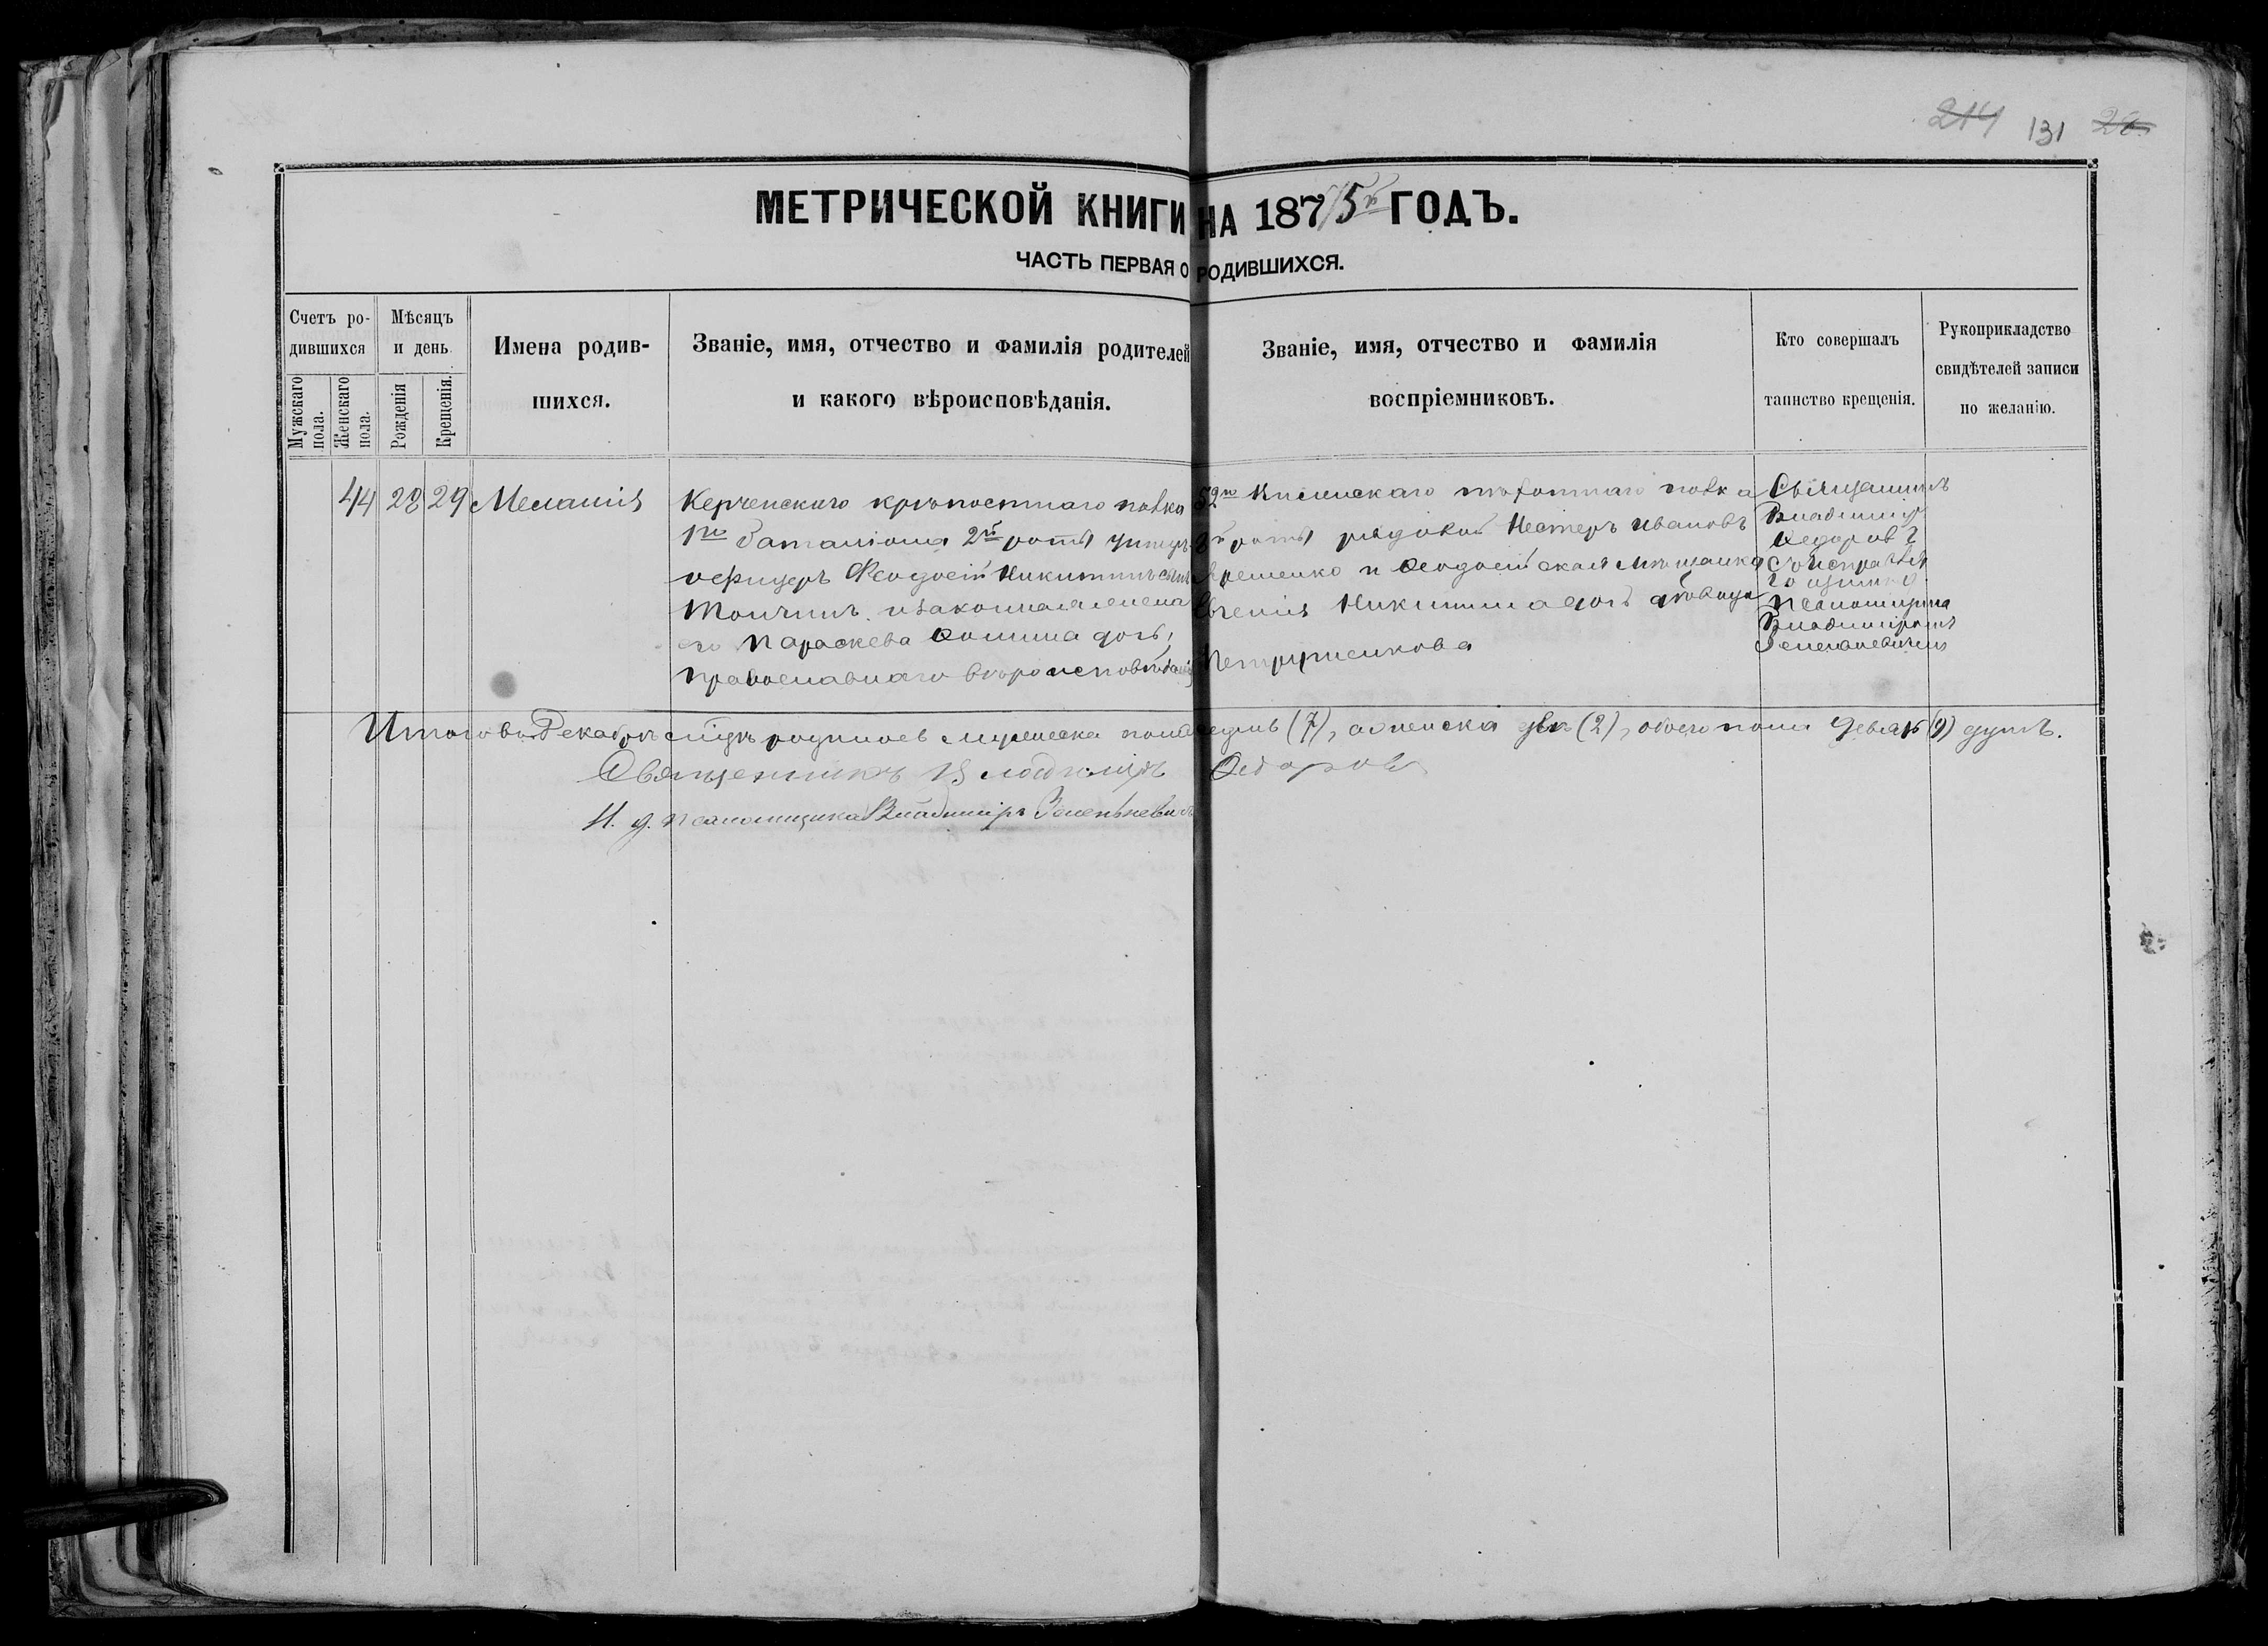 214 131 26
МЕТРИЧЕСКОЙ КНИГИ НА 1875й ГОДЪ.
ЧАСТЬ ПЕРВАЯ О РОДИВШИХСЯ.
Счетъ ро-
дившихся
Мужскаго пола.
Женскаго пола.
Мѣсяцъ
и день
Рожденія
Крещенія.
Имена родив-
шихся.
Званіе, имя, отчество и фамилія родителей
и какого вѣроисповѣданія.
Званіе, имя, отчество и фамилія
воспріемниковъ.
Кто совершалъ
таинство крещенія.
Рукоприкладство
свидѣтелей записи
по желанію.
44 28 29 Меланія
Керченскаго крѣпостнаго полка
1го баталіона 2й роты унтеръ-
офицеръ Феодосій Никитинъ сынъ
и законная жена
его Параскева Фомина дочь,
православнаго вѣроисповѣданія
52го Виленскаго пѣхотнаго полка
роты рядовой Нестеръ Ивановъ
и Феодосійская мѣщанка
Никитина дочь вдова
Священникъ
Владиміръ
Федоровъ
съ
псаломщика
Владиміромъ
Зеленкевичемъ
Итого въ Декабрѣ мѣсяцѣ родилось мужеска пола седмь (7), а женска двѣ (2), обоего пола девять (9) душъ.
Священникъ Владиміръ Федоровъ
И. д. псаломщика Владиміръ Зеленкевичъ